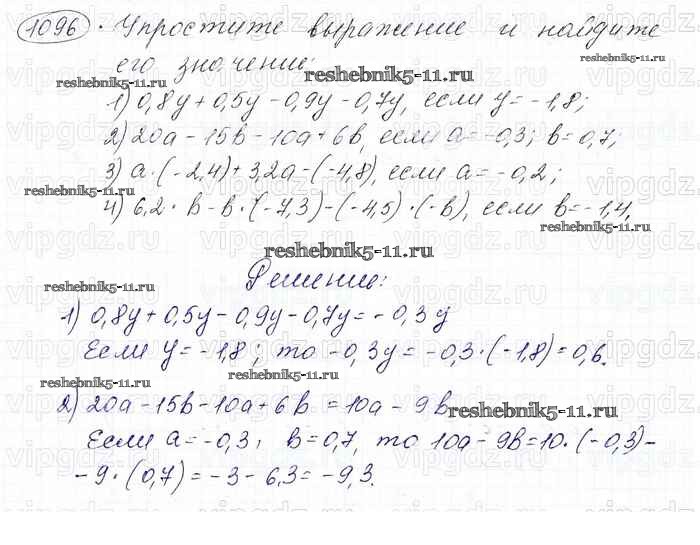 1096. Упростите выражение и найдите
его значение:
reshebnik5-11.ru
reshebnik5-11.ru
reshebnik5-11.ru
1) 0,8y + 0,5y - 0,9y - 0,7y, если y = -1,8;
2) 20a - 15b - 10a + 6b, если a = -0,3; b = 0,7;
3) a·(-2,4) + 3,2a - (-4,8), если a = -0,2;
reshebnik5-11.ru
4) 6,2·b - b·(-7,3) - (-4,5)·(-b), если b = -1,4.
reshebnik5-11.ru
reshebnik5-11.ru
Решение:
reshebnik5-11.ru
1) 0,8y + 0,5y - 0,9y - 0,7y = -0,3y
Если y = -1,8; то -0,3y = -0,3·(-1,8) = 0,6.
reshebnik5-11.ru
reshebnik5-11.ru
2) 20a - 15b - 10a + 6b = 10a - 9b
reshebnik5-11.ru
Если a = -0,3, b = 0,7, то 10a - 9b = 10·(-0,3) -
- 9·(0,7) = -3 - 6,3 = -9,3.
vipgdz.ru